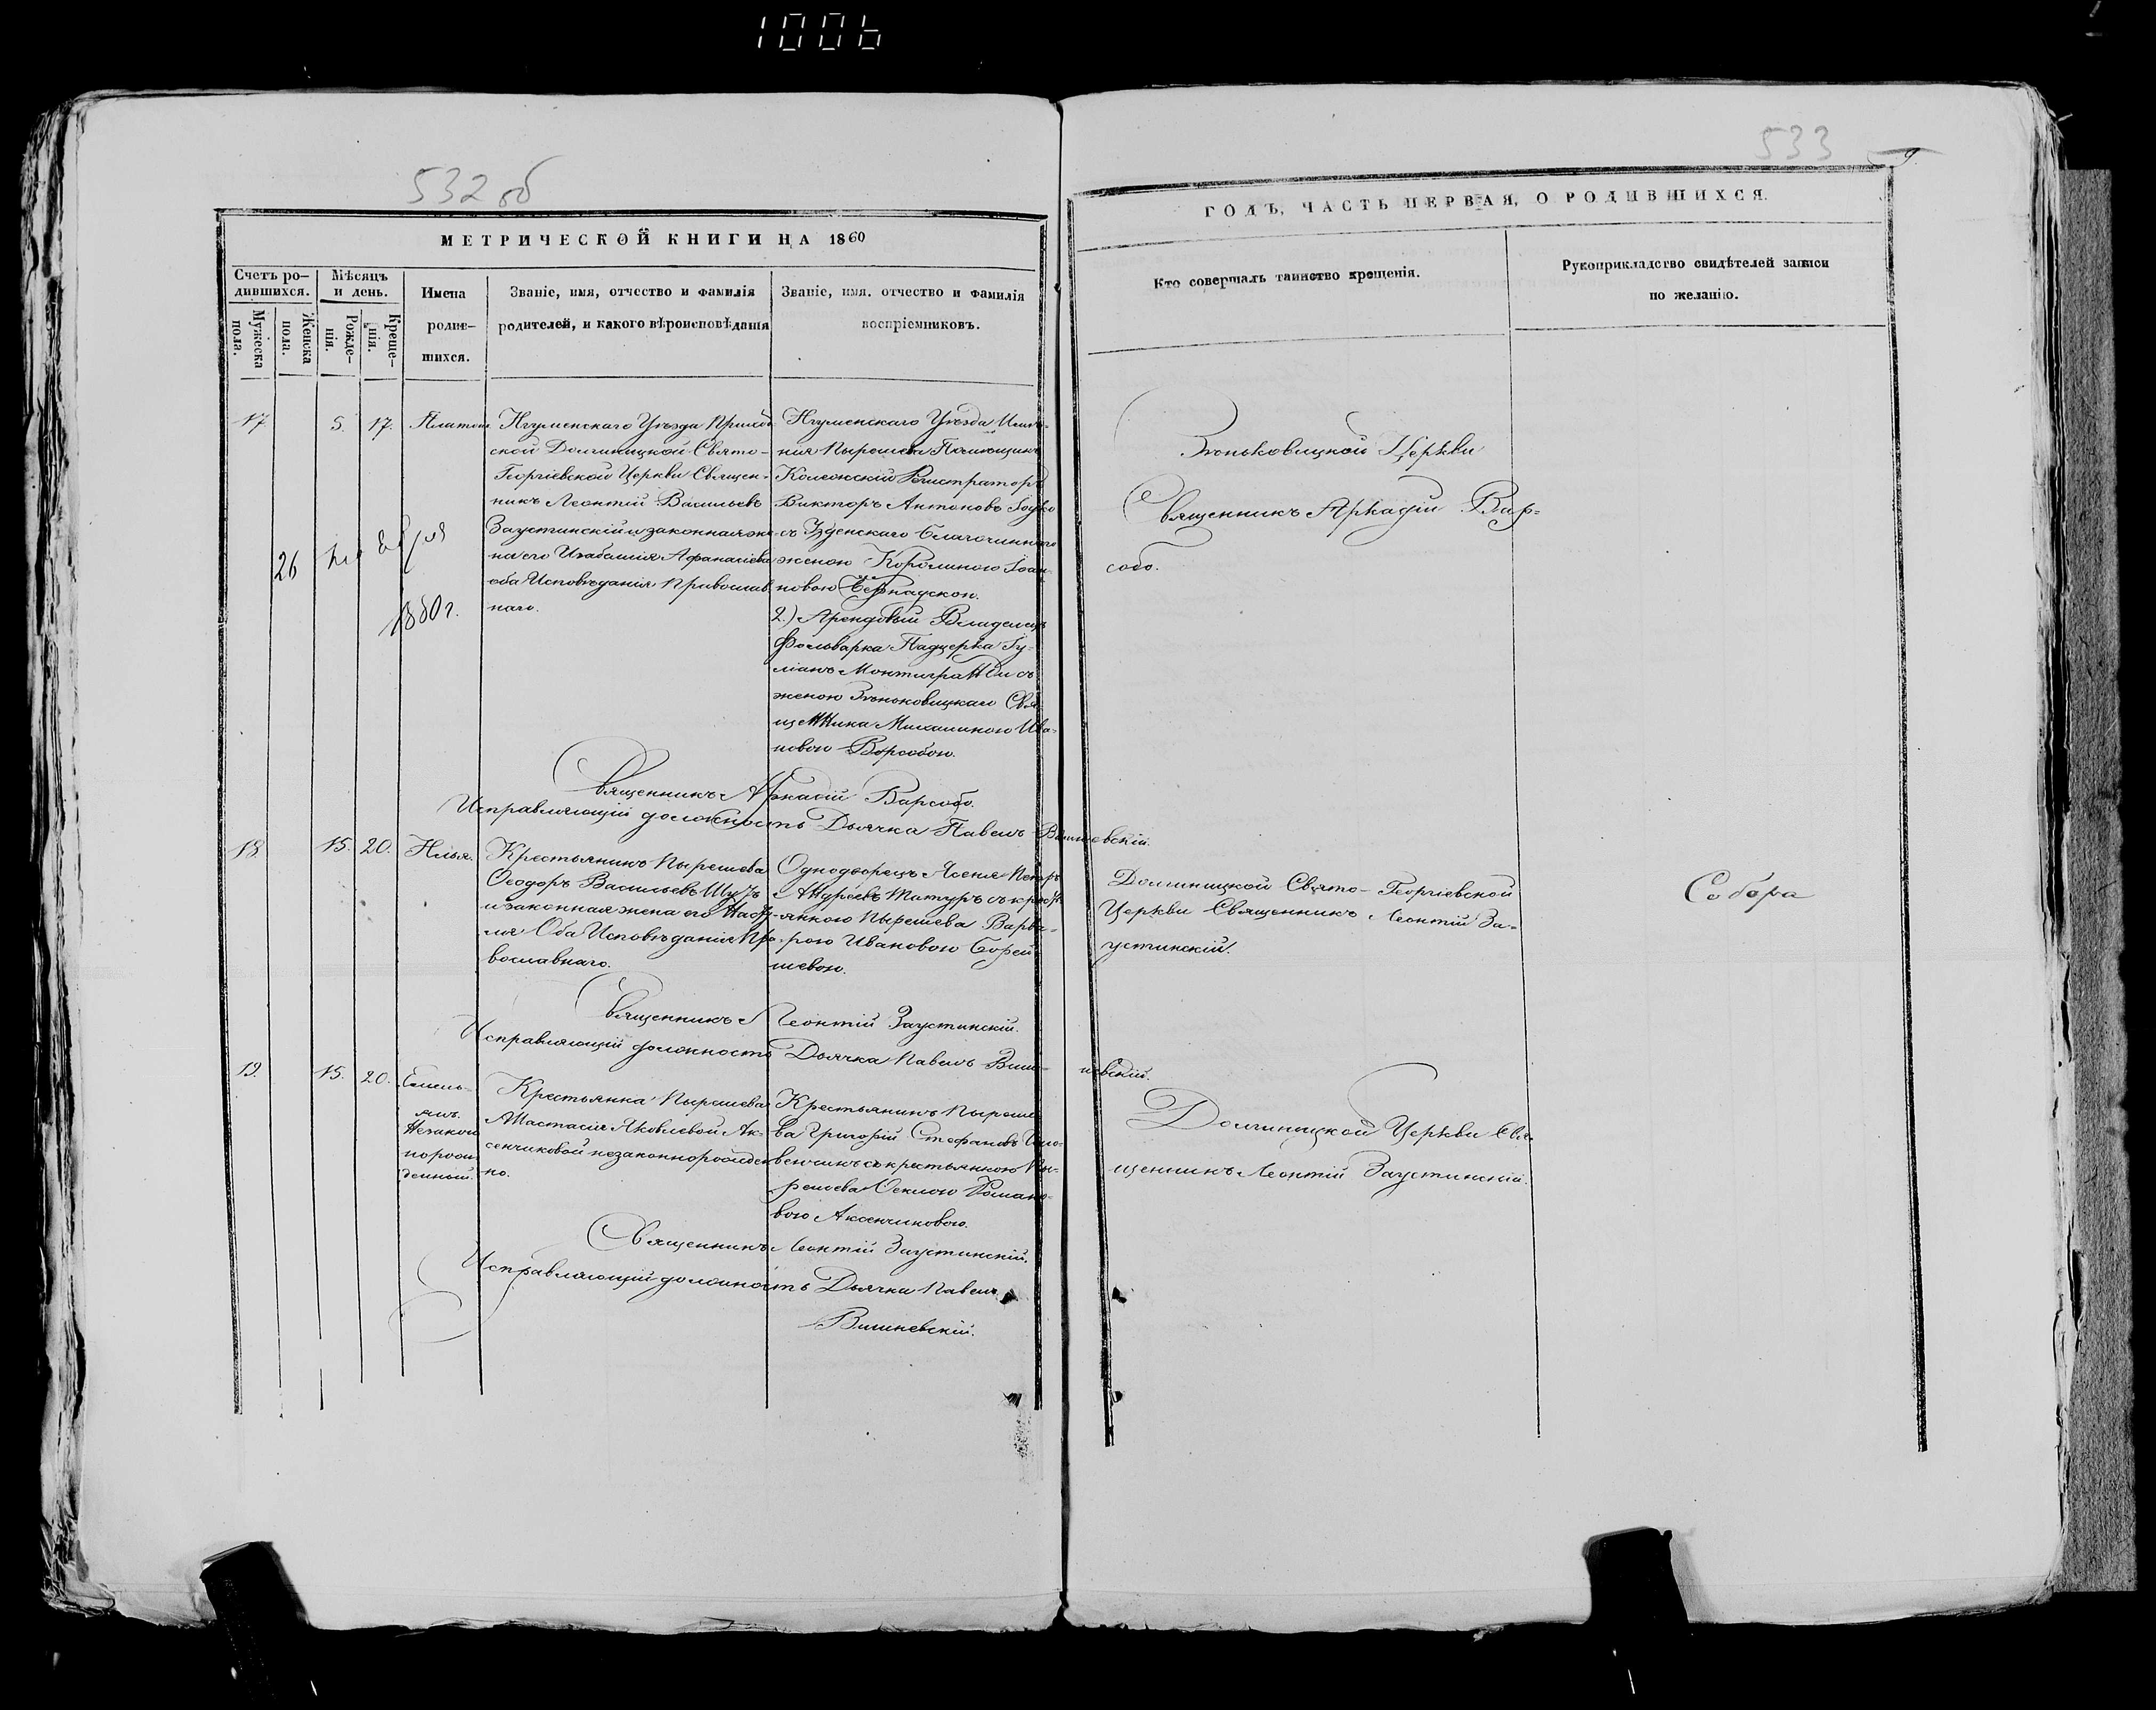 1006
532 об
МЕТРИЧЕСКОЙ КНИГИ НА 1860
Счетъ ро-
дившихся.
Мужеска
пола.
Женска
пола.
Мѣсяцъ
и день.
Рожде-
нія.
Креще-
нія.
Имена
родив-
шихся.
Званіе, имя, отчество и фамилія
родителей, и какого вѣроисповѣданія
Званіе, имя, отчество и фамилія
воспріемниковъ.
17 5. 17. Платонъ
Игуменскаго Уѣзда Приход
ской Долиницкой Свято-
Георгіевской Церкви Священ-
никъ Леонтій Васильевъ
Заустинскій и законная же-
на его Изабелла Афанасіева
оба Исповѣданія Православ
наго.
Игуменскаго Уѣзда Имѣ-
нія Пырешева Помющикъ
Колежскій Регистраторъ
Викторъ Антоновъ
съ Узденскаго Благочиннаго
женою Королиною Іоан-
новою
2.) Арендовый Владелецъ
Фольварка Падцерка Іу-
ліанъ съ
женою Зеньковицкаго Свя-
щенника Михалиною Ива-
новою Варсобою.
26
1860 г.
Священникъ Аркадій Варсобо.
Исправляющій должность Дьячка Павелъ Вишневскій.
18. 15. 20. Илья.
Крестьянинъ Пырешева
Ѳеодоръ Васильевъ Шуръ
и законная жена его
Оба Исповѣданія Пра-
вославнаго.
Однодворецъ Петръ
Андреевъ Татуръ съ крест
янкою Пырешева Варва-
рою Ивановою Борей
шевою.
Священникъ Леонтій Заустинскій.
Исправляющій должность Дьячка Павелъ Виш- невскій.
19. 15. 20. Емель-
янъ.
Незакон
норож
денный.
Крестьянка Пырешева
Анастасія Яковлевой Ак-
сенчиковой незаконнорожден
но.
Крестьянинъ Пыреше
ва Григорій Стефановъ
съ крестьянкою Пы-
решева Ѳеклою Романо-
вою Аксенчиковою.
Священникъ Леонтій Заустинскій.
Исправляющій должность Дьячка Павелъ
Вишневскій.
533
9.
ГОДЪ, ЧАСТЬ ПЕРВАЯ, О РОДИВШИХСЯ.
Кто совершалъ таинство крещенія.
Рукоприкладство свидѣтелей записи
по желанію.
Зеньковицкой Церкви
Священникъ Аркадій Вар-
собо.
Долиницкой Свято-Георгіевской
Церкви Священникъ Леонтій За-
устинскій.
Долиницкой Церкви Свя-
щенникъ Леонтій Заустинскій.